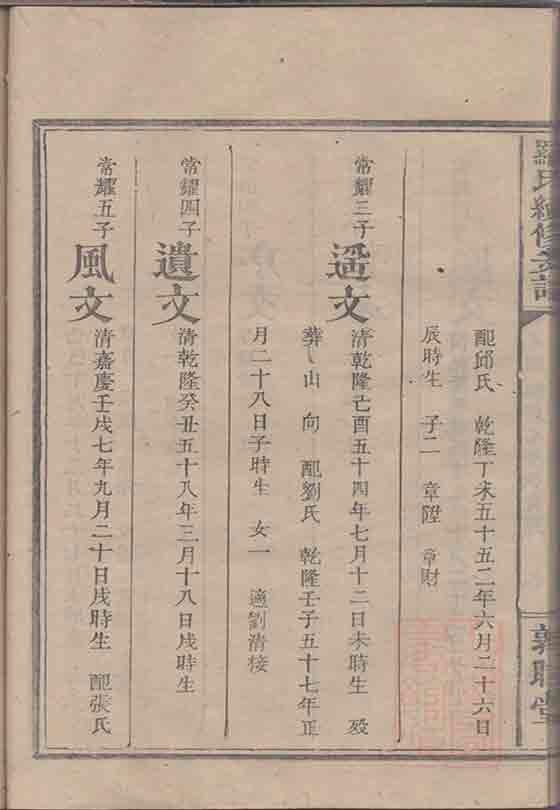 羅氏續修支譜
配邱氏 乾隆丁未五十五二年六月二十六日
辰時生 子二 章陞 章財
常耀三子 遥文 清乾隆己酉五十四年七月十二日未時生 歿
葬 山 向 配劉氏 乾隆壬子五十七年正
月二十八日子時生 女一 適劉清接
常耀四子 遺文 清乾隆癸丑五十八年三月十八日戌時生
常耀五子 風文 清嘉慶壬戌七年九月二十日戌時生 配張氏